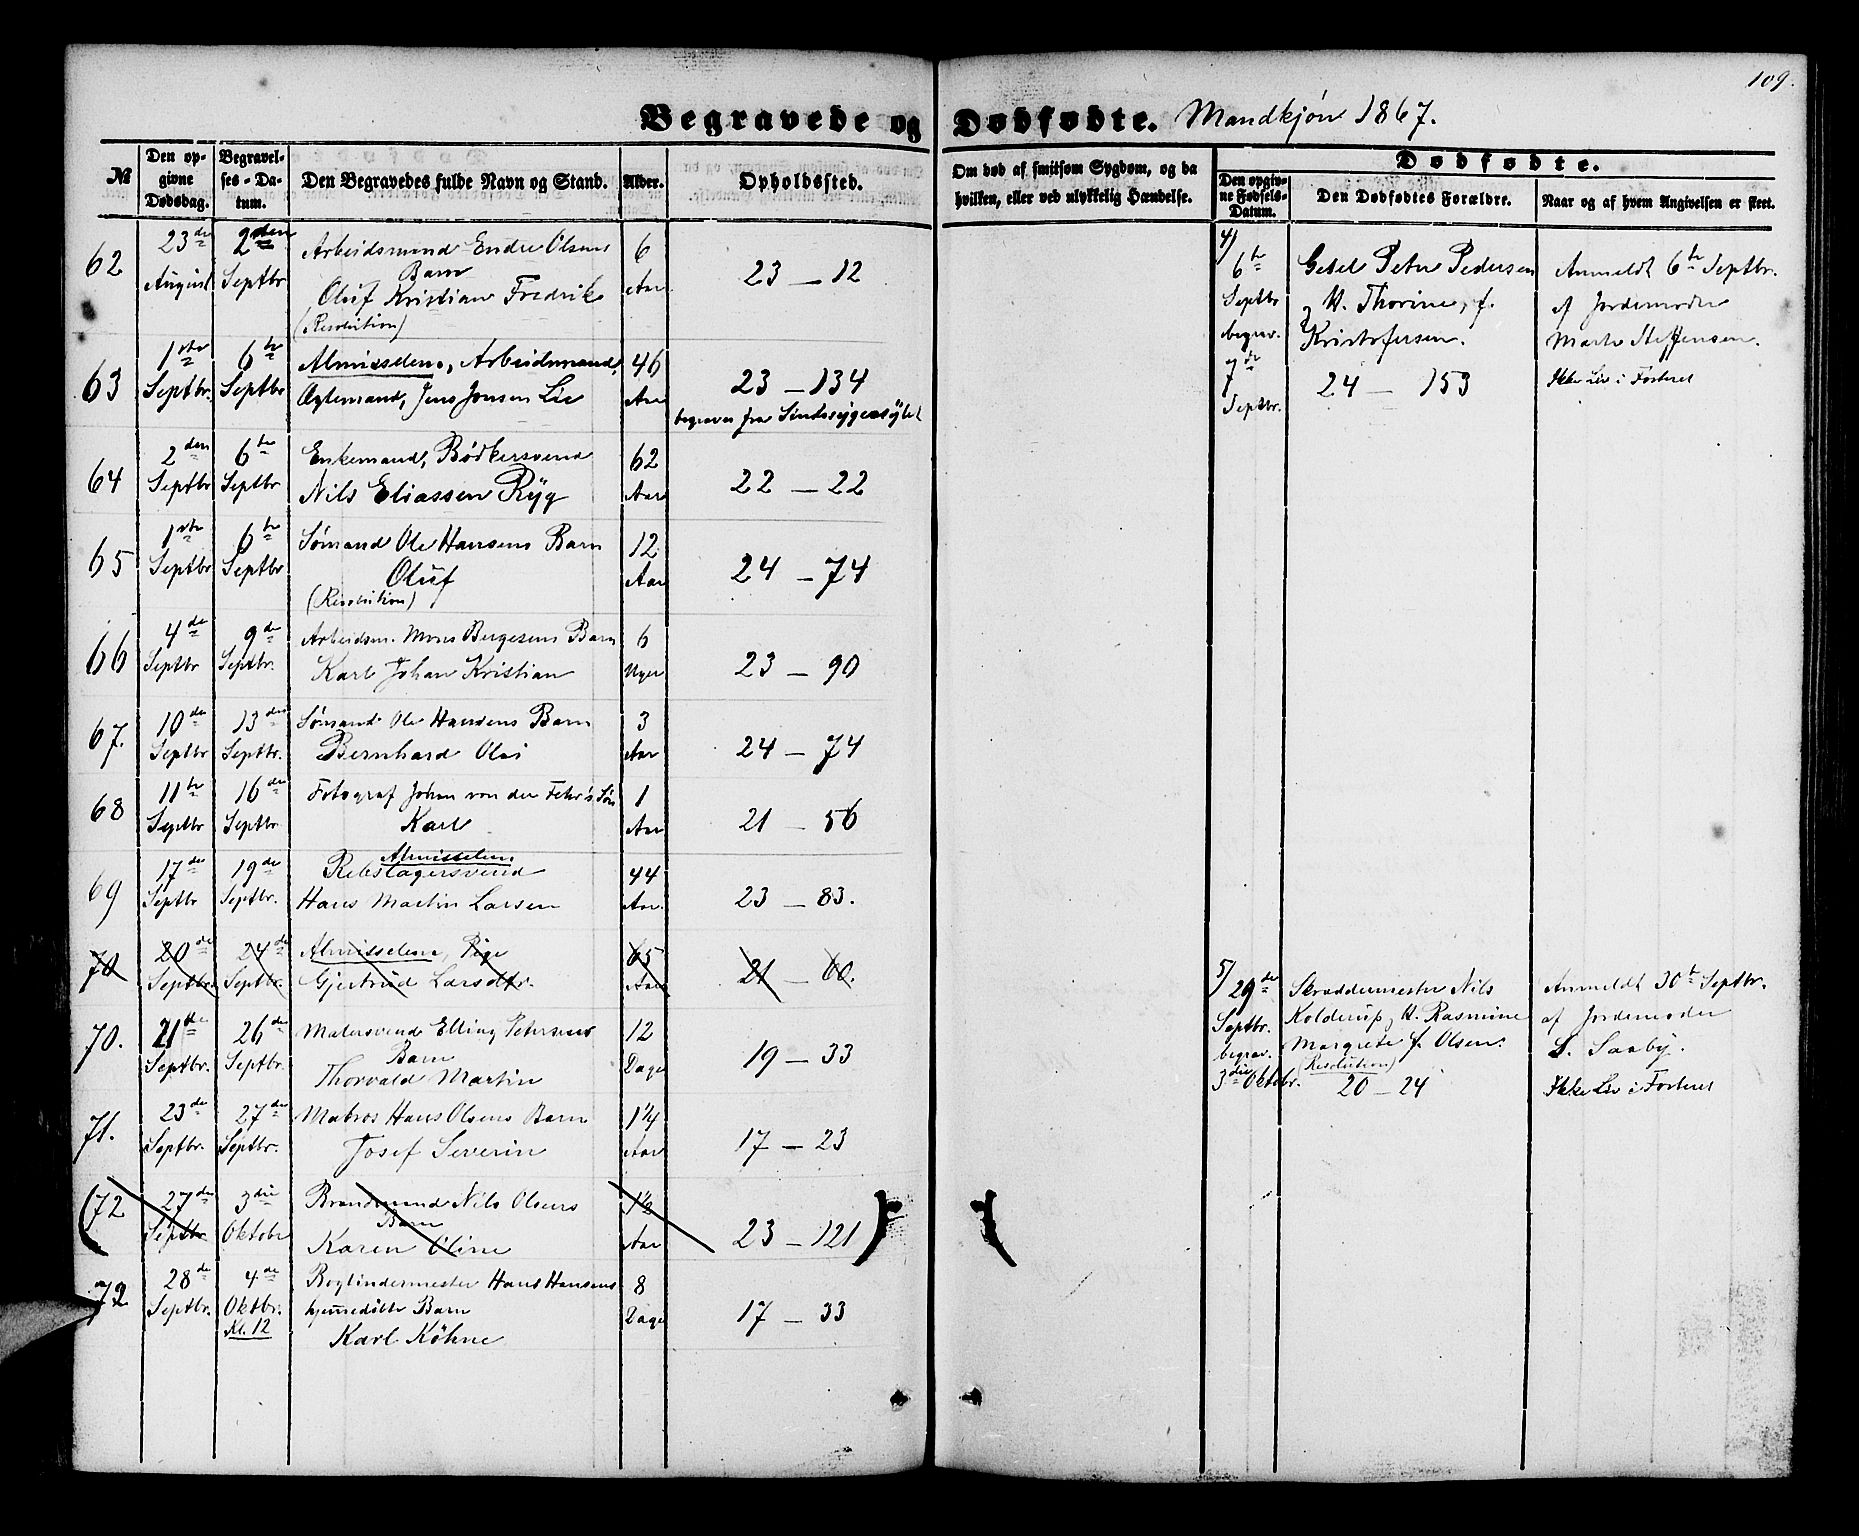 109.
Begravede og Dødfødte. Mandkjøn 1867.
№ | Den opgivne Dødsdag. | Begravelses-Datum. | Den Begravedes fulde Navn og Stand. | Alder. | Opholdssted. | Om død af smitsom Sygdom, og da hvilken, eller ved ulykkelig Hændelse.
Dødfødte.
Den opgivne Fødsels-Datum. | Den Dødfødtes Forældre. | Naar og af hvem Angivelsen er skeet.
62 | 23de August | 2den Septbr | Arbeidsmand Endre Olsens Barn Oluf Kristian Fredrik (Resolution) | 6 Aar | 23 — 12
63 | 1ste Septbr. | 6te Septbr | Almisselem, Arbeidsmand, Ægtemand, Jens Jonsen Lie | 46 Aar | 23 — 134 begraves fra Sindssygeasylet
64 | 2den Septbr | 6te Septbr | Enkemand, Bødkersvend Nils Eliassen Ryg | 62 Aar | 22 — 22
65 | 1ste Septbr | 6te Septbr | Sømand Ole Hansens Barn Oluf (Resolution) | 12 Aar | 24 — 74
66 | 4de Septbr | 9de Septbr. | Arbeidsm. Mons Bergesens Barn Karl Johan Kristian | 6 Uger | 23 — 90
67. | 10de Septbr | 13de Septbr. | Sømand Ole Hansens Barn Bernhard Olai | 3 Aar | 24 — 74
68 | 11te Septbr | 16de Septbr | Fotograf Johan von der Fehr's Søn Karl | 1 Aar | 21 — 56
69 | 17de Septbr | 19de Septbr. | Almisselem Rebslagersvend Hans Martin Larsen | 44 Aar. | 23 — 83.
70 | 20de Septbr | 24de Septbr. | Almisselem, Pige Gjertrud Larsdtr. | 65 Aar | 21 — 60.
70. | 21de Septbr. | 26de Septbr. | Malersvend Elling Petersens Barn Thorvald Martin | 12 Dage | 19 — 33
71. | 23de Septbr. | 27de Septbr. | Matros Hans Olsens Barn Josef Severin | 1¼ Aar | 17 — 23
(72 | 27de Septbr | 3die Oktobr | Brandmand Nils Olsens Barn Karen Oline | 1½ Aar | 23 — 121)
72 | 28de Septbr. | 4de Oktbr. Kl. 12 | Bogbindermester Hans Hansens hjemedøbte Barn Karl Köhne | 8 Dage | 17 — 33
4) 6te Septbr begrav. 7de Septbr. | Gesel Peter Pedersen og H. Thorine, f. Kristofersen. 24 — 153 | Anmeldt 6te Septbr. af Jordemoder Marte Steffensen. Ikke Liv i Fosteret
5) 29de Septbr. begrav. 3die Oktobr. | Skræddermester Nils Kolderup, H. Rasmine Margrete f. Olsen. (Resolution) 20 — 24 | Anmeldt 30te Septbr. af Jordemoder S. Saaby. Ikke Liv i Fosteret